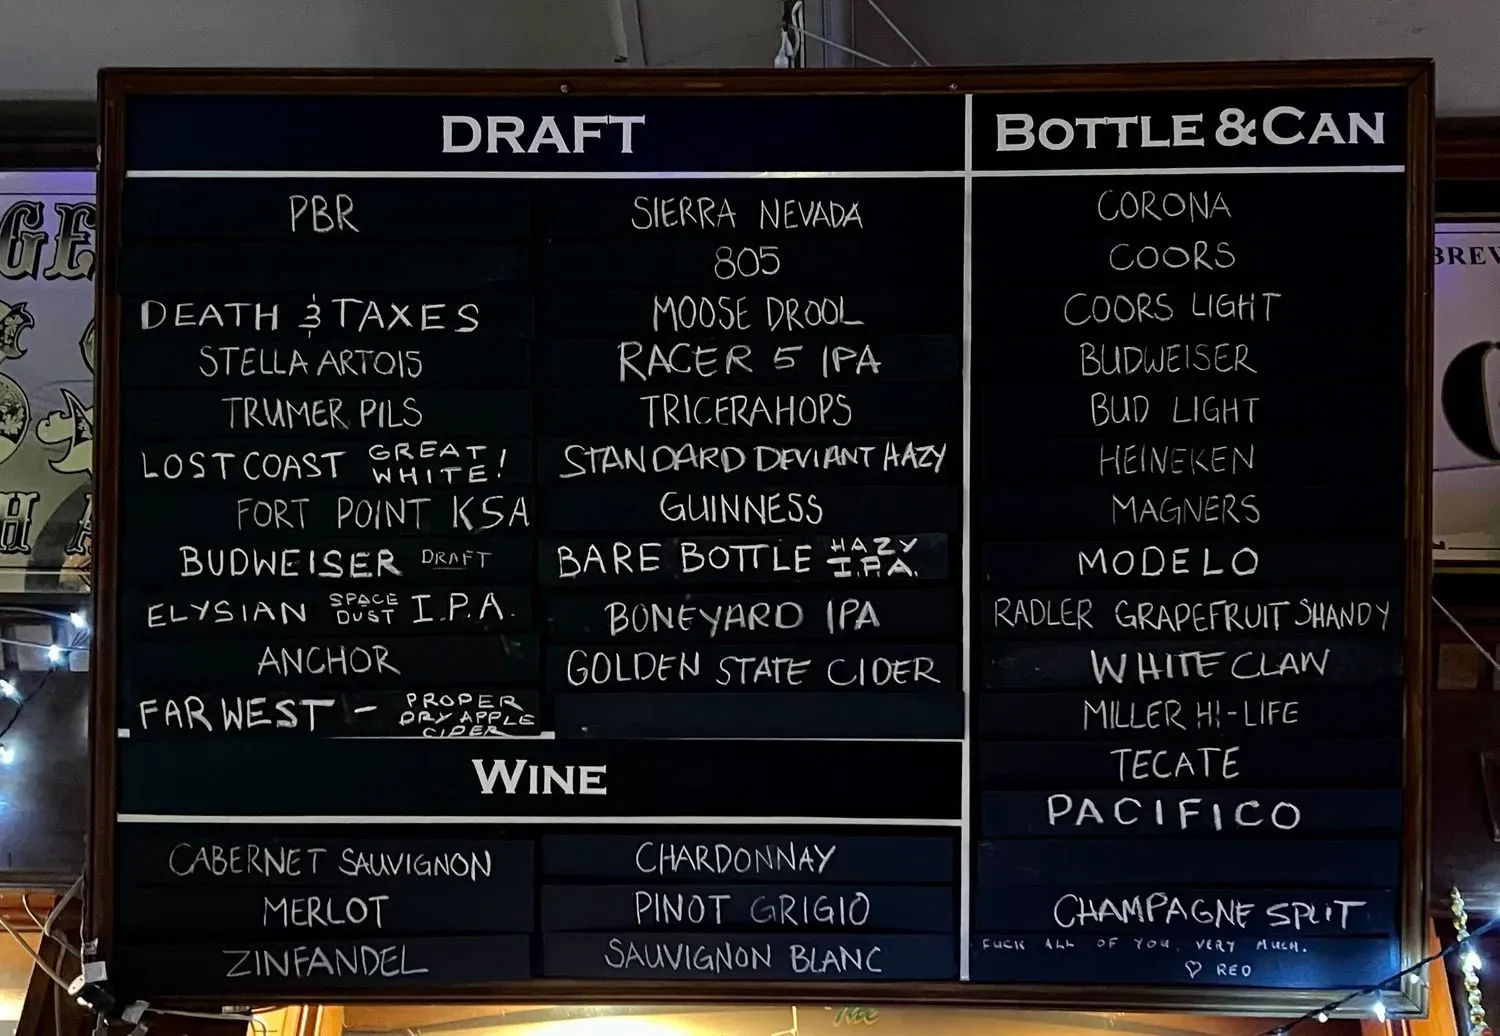 DRAFT
PBR
DEATH & TAXES
STELLA ARTOIS
TRUMER PILS
LOST COAST GREAT WHITE!
FORT POINT KSA
BUDWEISER DRAFT
ELYSIAN SPACE DUST I.P.A.
ANCHOR
FAR WEST - PROPER DRY APPLE CIDER
SIERRA NEVADA
805
MOOSE DROOL
RACER 5 IPA
TRICERAHOPS
STANDARD DEVIANT HAZY
GUINNESS
BARE BOTTLE HAZY I.P.A.
BONEYARD IPA
GOLDEN STATE CIDER
WINE
CABERNET SAUVIGNON
MERLOT
ZINFANDEL
CHARDONNAY
PINOT GRIGIO
SAUVIGNON BLANC
BOTTLE & CAN
CORONA
COORS
COORS LIGHT
BUDWEISER
BUD LIGHT
HEINEKEN
MAGNERS
MODELO
RADLER GRAPEFRUIT SHANDY
WHITE CLAW
MILLER HI-LIFE
TECATE
PACIFICO
CHAMPAGNE SPLIT
FUCK ALL OF YOU. VERY MUCH.
♡ RED
The